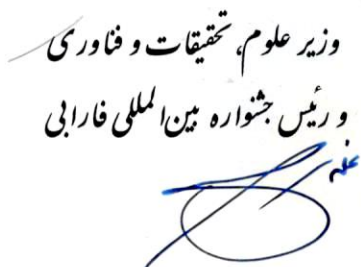 وزیر علوم، تحقیقات و فناوری
و رئیس جشنواره بین‌المللی فارابی